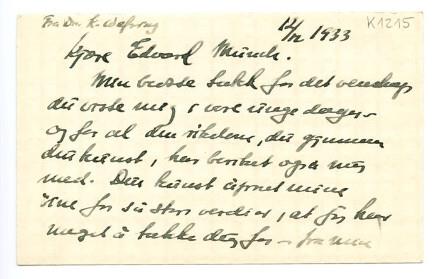 Fra Dr. K.
12/12 1933
K1215
Kjære Edvard Munch.
Min bedste takk for det venskap
du viste mig i våre unge dager
og for al den rikdom, du gjennem
din kunst, har beriket også mig
med. Din kunst åpnet mine
øine for så store verdier, at jeg har
meget å takke dig for – fra min